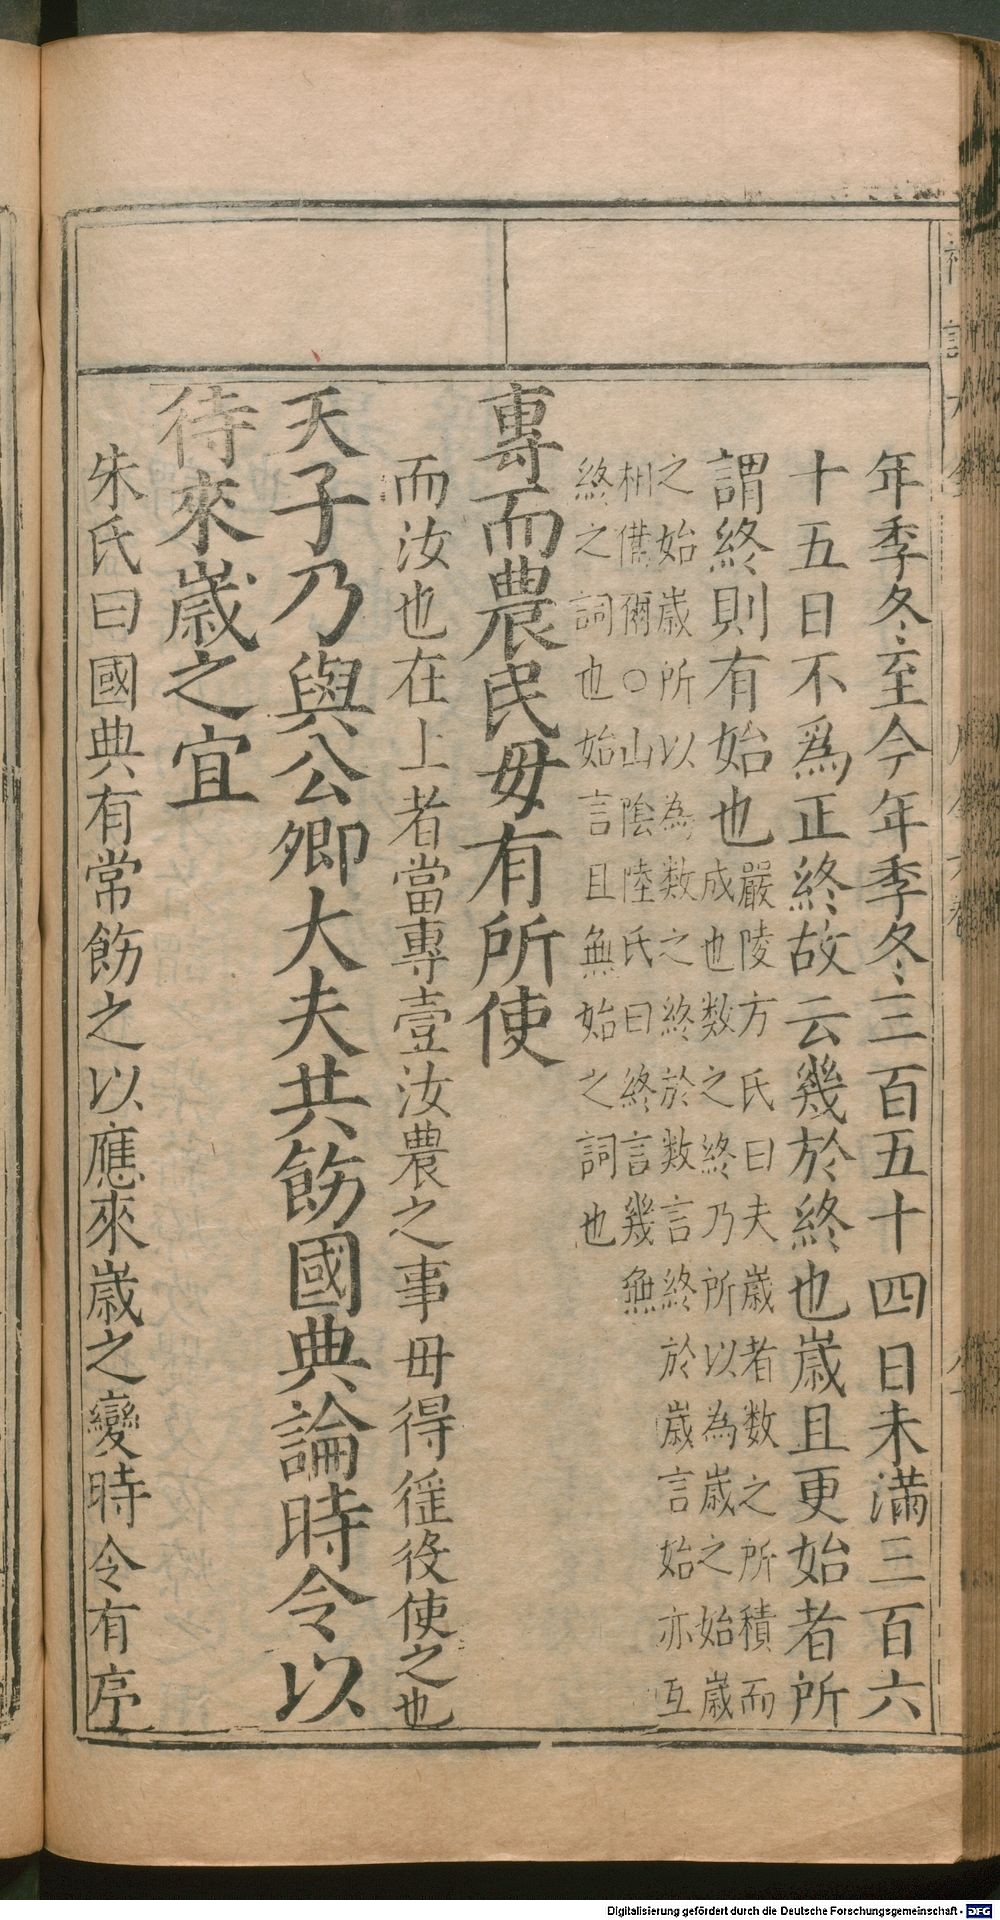 年季冬至今年季冬三百五十四日未滿三百六
十五日不爲正終故云幾於終也歲且更始者所
謂終則有始也
嚴陵方氏曰夫歲者数之所積而
成也数之終乃所以為歲之始歲
之始歲所以為數之終於数言終於歲言始亦互
相僃爾○山陰陸氏曰終言幾無
終之詞也始言且無始之詞也
專而農民毋有所使
而汝也在上者當專壹汝農之事毋得徭役使之也
天子乃與公卿大夫共飭國典論時令以
待來歲之宜
朱氏曰國典有常飭之以應來歲之變時令有序
Digitalisierung gefördert durch die Deutsche Forschungsgemeinschaft - DFG